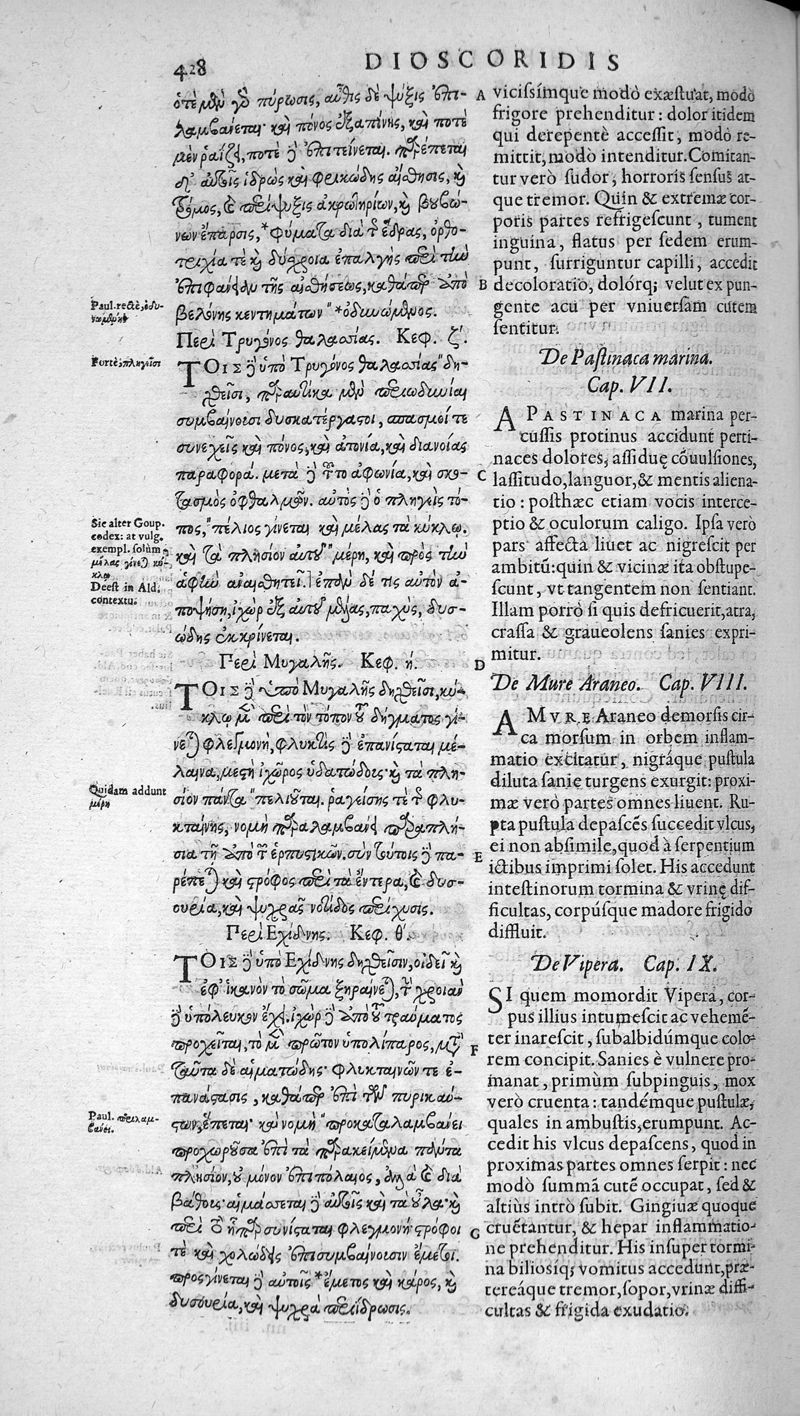 428
DIOSCORIDIS
ὁτὲ μὲν γὸ πύρωσις, αὖθις δὲ ψύξις ἐπι-
λαμβάνεται· καὶ πόνος ἐξαπίνης, καὶ ποτὲ
μὲν ῥαΐζει, ποτὲ ἢ ἐπιτείνεται. παρέπεται
δ' αὐτοῖς ἱδρὼς καὶ φρικώδης αἴσθησις, καὶ
τρόμος, καὶ περίψυξις ἀκρωτηρίων, καὶ βουβώ-
νων ἔπαρσις, *φύματα διὰ τ ἕδρας, ὀρθο-
τριχία τε καὶ δύσχροια ἐπαλγὴς περὶ τὴν
ἐπιφάνειαν τῆς αἰσθήσεως, καθάπερ ἀπὸ
βελόνης κεντημάτων "*ὀδυνώμενος.
Περὶ Τρυγόνος θαλασσίας. Κεφ. ζ'.
ΤΟΙΣ ἢ ὑπὸ Τρυγόνος θαλασσίας "δη-
χθεῖσι, παραυτίκα μὲν περιωδυνίαι
συμβαίνουσι δυσκατέργαστοι, σπασμοί τε
συνεχεῖς καὶ πόνος, καὶ ἀτονία, καὶ διανοίας
παραφορά. μετὰ ἢ τοῦτο ἀφωνία, καὶ σκο-
τασμὸς ὀφθαλμῶν. αὐτὸς ἢ ὁ πληγεὶς τό-
πος, "πέλιος γίνεται καὶ μέλας τὰ κύκλῳ.
καὶ τὰ πλησίον αὐτοῦ "μέρη, καὶ πρὸς τὴν
ἁφὴν ἀναισθητεῖ. ἐπὰν δέ τις αὐτὸν ἀ-
ποψήσῃ, ἰχὼρ ἐξ αὐτοῦ μέλας, παχὺς, δυσ-
ώδης ἐκκρίνεται.
Περὶ Μυγαλῆς. Κεφ. ή.
ΤΟΙΣ ἢ ὑπὸ Μυγαλῆς δηχθεῖσι, κύ-
κλῳ μὲν περὶ τὸν τόπον τοῦ δήγματος γί-
νεται φλεγμονὴ, φλυκτὶς ἢ ἐπανίσταται μέ-
λαινα, μεστὴ ἰχῶρος ὑδατώδους· καὶ τὰ πλη-
σίον πάντα "πελιοῦται. ῥαγείσης τε τ φλυ-
κταίνης, νομὴ παραλαμβάνει παραπλη-
σία τῇ ἀπὸ τ ἑρπυστικῶν. σὺν τούτοις ἢ πα-
ρέπεται καὶ στρόφος περὶ τὰ ἔντερα, καὶ δυσ-
ουρία, καὶ ψυχρᾶς νοτίδος περίχυσις.
Περὶ Εχίδνης. Κεφ. θ'.
ΤΟΙΣ ἢ ὑπὸ Εχίδνης δηχθεῖσιν, οἰδεῖ καὶ
ἐφ' ἱκανὸν τὸ σῶμα ξηραίνεται, τ χροιὰν
ἢ ὑπόλευκον ἔχει. ἰχὼρ ἢ ἀπὸ τοῦ τραύματος
προχεῖται, τὸ μὲν πρῶτον ὑπολίπαρος, μετὰ
ταῦτα δὲ αἱματώδης· φλυκταινῶν τε ἐ-
πανάστασις, καθάπερ ἐπὶ τῶν πυρικαύ-
στων, ἕπεται· καὶ νομὴ "προκαταλαμβάνει
προχωροῦσα ἐπὶ τὰ παρακείμενα πάντα
πλησίον, οὐ μόνον ἐπιπόλαιος, ἀλλὰ καὶ διὰ
βάθους· αἱμάσσεται ἢ αὐτοῖς καὶ τὰ οὖλα· καὶ
περὶ τὸ ἧπαρ συνίσταται φλεγμονὴ, στρόφοι
τε καὶ χολώδεις ἐπισυμβαίνουσιν ἔμετοι.
προσγίνεται ἢ αὐτοῖς *ἔμετος καὶ κάρος, καὶ
δυσουρία, καὶ ψυχρὰ περιίδρωσις.
Paul. rectè, ὀδυ-
νωμένην
Fortè, πληγεῖσι
Sic alter Goup.
codex: at vulg.
exempl. solùm,
μέλας γίνεται κύ-
κλῳ
Deest in Ald.
contextu.
Quidam addunt
μέρη
Paul. περιλαμ-
βάνει.
A
B
C
D
E
F
G
vicissímque modò exæstuat, modò
frigore prehenditur: dolor itidem
qui derepentè accessit, modò re-
mittit, modò intenditur. Comitan-
tur verò sudor, horroris sensus at-
que tremor. Quin & extremæ cor-
poris partes refrigescunt, tument
inguina, flatus per sedem erum-
punt, surriguntur capilli, accedit
decoloratio, dolórq; velut ex pun-
gente acu per vniuersam cutem
sentitur.
De Pastinaca marina.
Cap. VII.
A PASTINACA marina per-
cussis protinus accidunt perti-
naces dolores, assiduę cõuulsiones,
lassitudo, languor, & mentis aliena-
tio: posthæc etiam vocis interce-
ptio & oculorum caligo. Ipsa verò
pars affecta liuet ac nigrescit per
ambitũ: quin & vicinæ ita obstupe-
scunt, vt tangentem non sentiant.
Illam porrò si quis defricuerit, atra,
crassa & graueolens sanies expri-
mitur.
De Mure Araneo. Cap. VIII.
A MVRE Araneo demorsis cir-
ca morsum in orbem inflam-
matio excitatur, nigráque pustula
diluta sanie turgens exurgit: proxi-
mæ verò partes omnes liuent. Ru-
pta pustula depascẽs succedit vlcus,
ei non absimile, quod à serpentium
ictibus imprimi solet. His accedunt
intestinorum tormina & vrinę dif-
ficultas, corpúsque madore frigido
diffluit.
De Vipera. Cap. IX.
SI quem momordit Vipera, cor-
pus illius intumescit ac vehemẽ-
ter inarescit, subalbidúmque colo-
rem concipit. Sanies è vulnere pro-
manat, primùm subpinguis, mox
verò cruenta: tandémque pustulæ,
quales in ambustis, erumpunt. Ac-
cedit his vlcus depascens, quod in
proximas partes omnes serpit: nec
modò summã cutẽ occupat, sed &
altiùs intrò subit. Gingiuæ quoque
cruẽtantur, & hepar inflammatio-
ne prehenditur. His insuper tormi-
na biliosíq; vomitus accedunt, præ-
tereáque tremor, sopor, vrinæ diffi-
cultas & frigida exudatio.